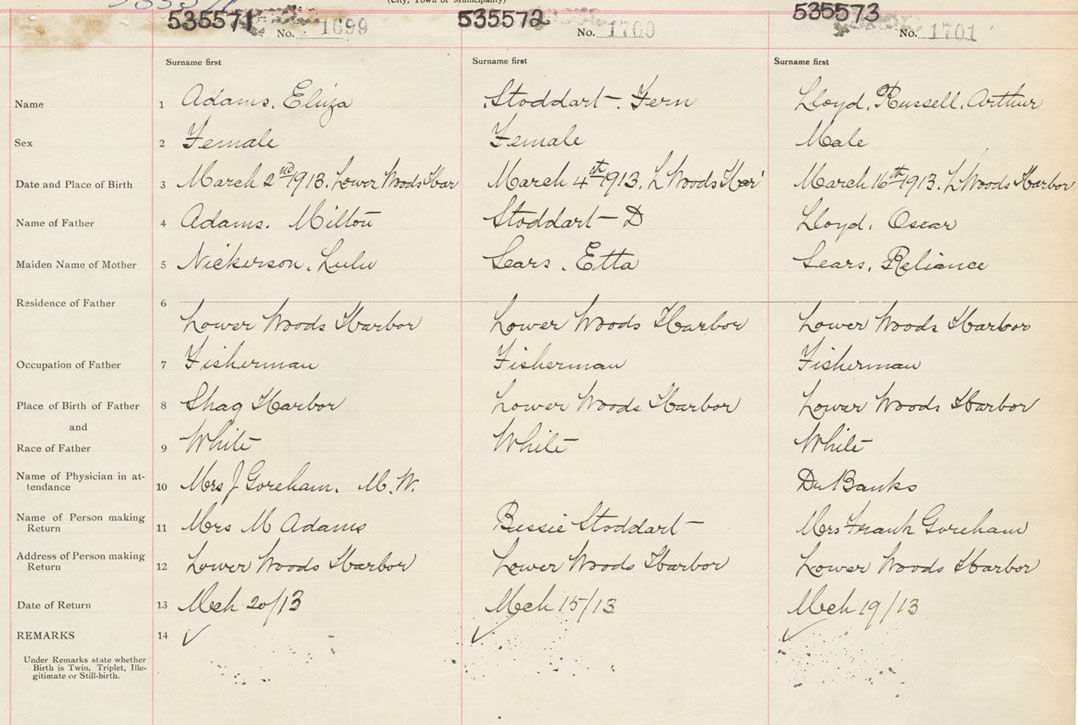 (City, Town or Municipality)
535571 535572 535573
No. 1699 No. 1700 No. 1701
Surname first Surname first Surname first
Name 1 Adams, Eliza Stoddart, Fern Lloyd, Russell, Arthur
Sex 2 Female Female Male
Date and Place of Birth 3 March 2nd 1913. Lower Woods Har March 4th 1913. L Woods Har' March 16th 1913. L Woods Harbor
Name of Father 4 Adams, Milton Stoddart D Lloyd, Oscar
Maiden Name of Mother 5 Nickerson, Lulu Sears, Etta Sears, Reliance
Residence of Father 6
Lower Woods Harbor Lower Woods Harbor Lower Woods Harbor
Occupation of Father 7 Fisherman Fisherman Fisherman
Place of Birth of Father 8 Shag Harbor Lower Woods Harbor Lower Woods Harbor
and
Race of Father 9 White White White
Name of Physician in at-
tendance 10 Mrs J Goreham. M.W. Dr Banks
Name of Person making
Return 11 Mrs M Adams Bessie Stoddart Mrs Frank Goreham
Address of Person making
Return 12 Lower Woods Harbor Lower Woods Harbor Lower Woods Harbor
Date of Return 13 Mch 20/13 Mch 15/13 Mch 19/13
REMARKS 14 ✓ ✓ ✓
Under Remarks state whether
Birth is Twin, Triplet, Ille-
gitimate or Still-birth.